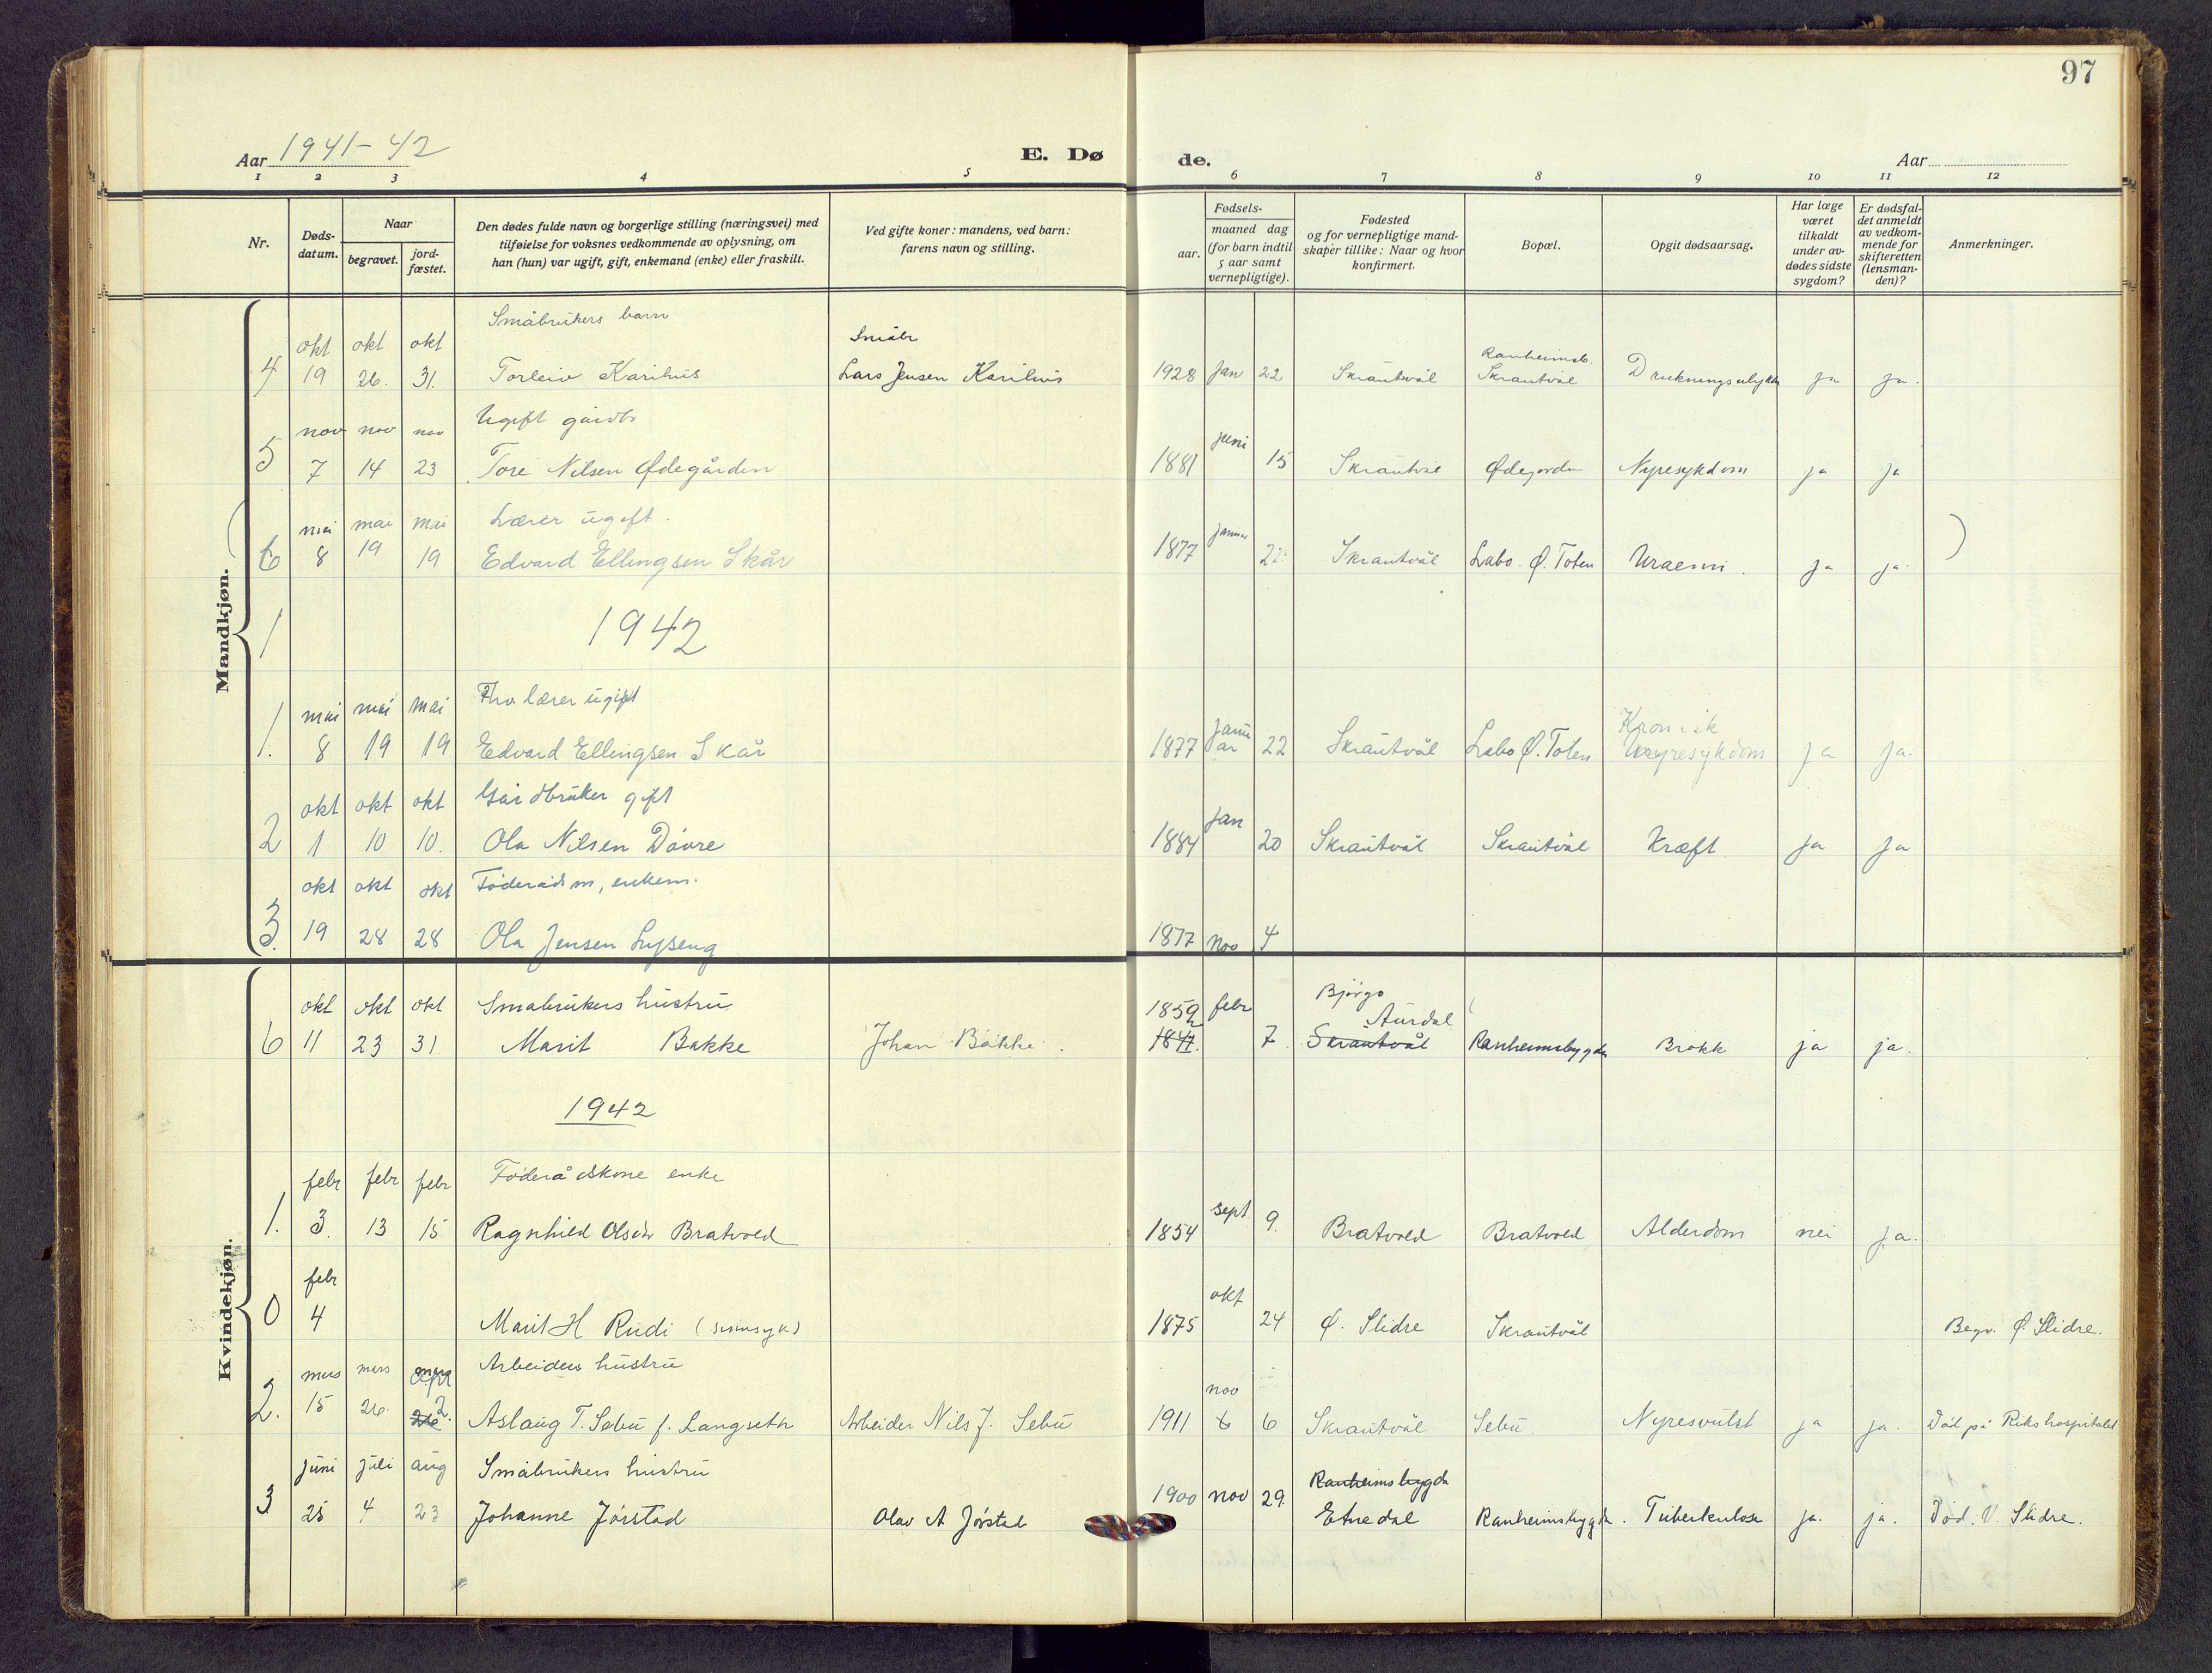 97
Aar 1941-42
E. Dø
de.
Aar
1 2 3 4 5 6 7 8 9 10 11 12
Nr.
Døds-datum.
Naar
begravet.
jord-fæstet.
Den dødes fulde navn og borgerlige stilling (næringsvei) med
tilføielse for voksnes vedkommende av oplysning, om
han (hun) var ugift, gift, enkemand (enke) eller fraskilt.
Ved gifte koner: mandens, ved barn:
farens navn og stilling.
Fødsels-
aar.
maaned dag
(for barn indtil
5 aar samt
vernepligtige).
Fødested
og for vernepligtige mand-
skaper tillike: Naar og hvor
konfirmert.
Bopæl.
Opgit dødsaarsag.
Har læge
været
tilkaldt
under av-
dødes sidste
sygdom?
Er dødsfal-
det anmeldt
av vedkom-
mende for
skifteretten
(lensman-
den)?
Anmerkninger.
Mandkjøn.
Småbrukers barn
okt okt okt Småbr Ranheimsb.
4 19 26. 31. Torleiv Karihus Lars Jensen Karihus 1928 Jan 22 Skrautvål Skrautvål Drukningsulykke ja ja.
Ugift gårdbr
nov nov nov juni
5 7 14 23 Tore Nilsen Ødegården 1881 15 Skrautvål Ødegården Nyresykdom ja ja
mai mai mai Lærer ugift. januar
6 8 19 19 Edvard Ellingsen Skår 1877 22 Skrautvål Labo. Ø. Toten Uraemi. ja ja
1 1942
mai mai mai Fhv. lærer ugift Janu Kronisk
1. 8 19 19 Edvard Ellingsen Skår 1877 ar 22 Skrautvål Labo Ø. Toten nyresykdom ja ja.
okt okt okt Gårdbruker gift Jan
2 1 10 10. Ola Nilsen Døvre 1884 20 Skrautvål Skrautvål Kræft ja ja
okt okt okt Føderådsm, enkem.
3. 19 28 28 Ola Jensen Lyseng 1877 nov 4
Kvindekjøn.
okt okt okt Småbrukers hustru 1859 febr Bjørgo Aurdal
6 11 23 31 Marit Bakke Johan Bakke. 1847. 7 Skrautvål Ranheimsbygda Brokk ja ja.
1942
febr febr febr Føderådskone enke sept
1. 3. 13 15 Ragnhild Olsdtr Bratvold 1854 9. Bratvold Bratvold Alderdom nei ja.
febr okt
0 4 Marit H Rudi (sinnsyk) 1875 24 Ø. Slidre Skrautvål Begr. Ø. Slidre.
mars mars apr Arbeiders hustru nov
2. 15 26. 26 2. Aslaug T. Sebu f. Langseth Arbeider Nils J. Sebu 1911 6 6 Skrautvål Sebu. Nyresvulst ja ja. Død på Rikshospitalet
juni juli aug Småbrukers hustru Ranheimsbygda
3 25 4 23 Johanne Jørstad Olav A Jørstad 1900 nov 29. Etnedal Ranheimsbygda. Tuberkulose ja. ja. Død. V. Slidre.